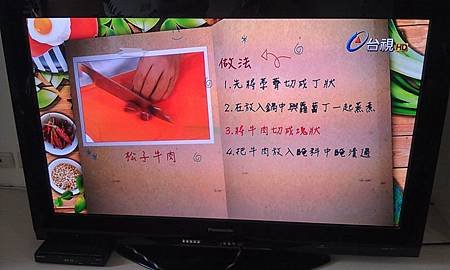 台視HD
做法
1.先將荸薺切成丁狀
2.在放入鍋中與蘿蔔丁一起蒸煮
3.將牛肉切成塊狀
4.把牛肉放入醃料中醃漬過
松子牛肉
Panasonic